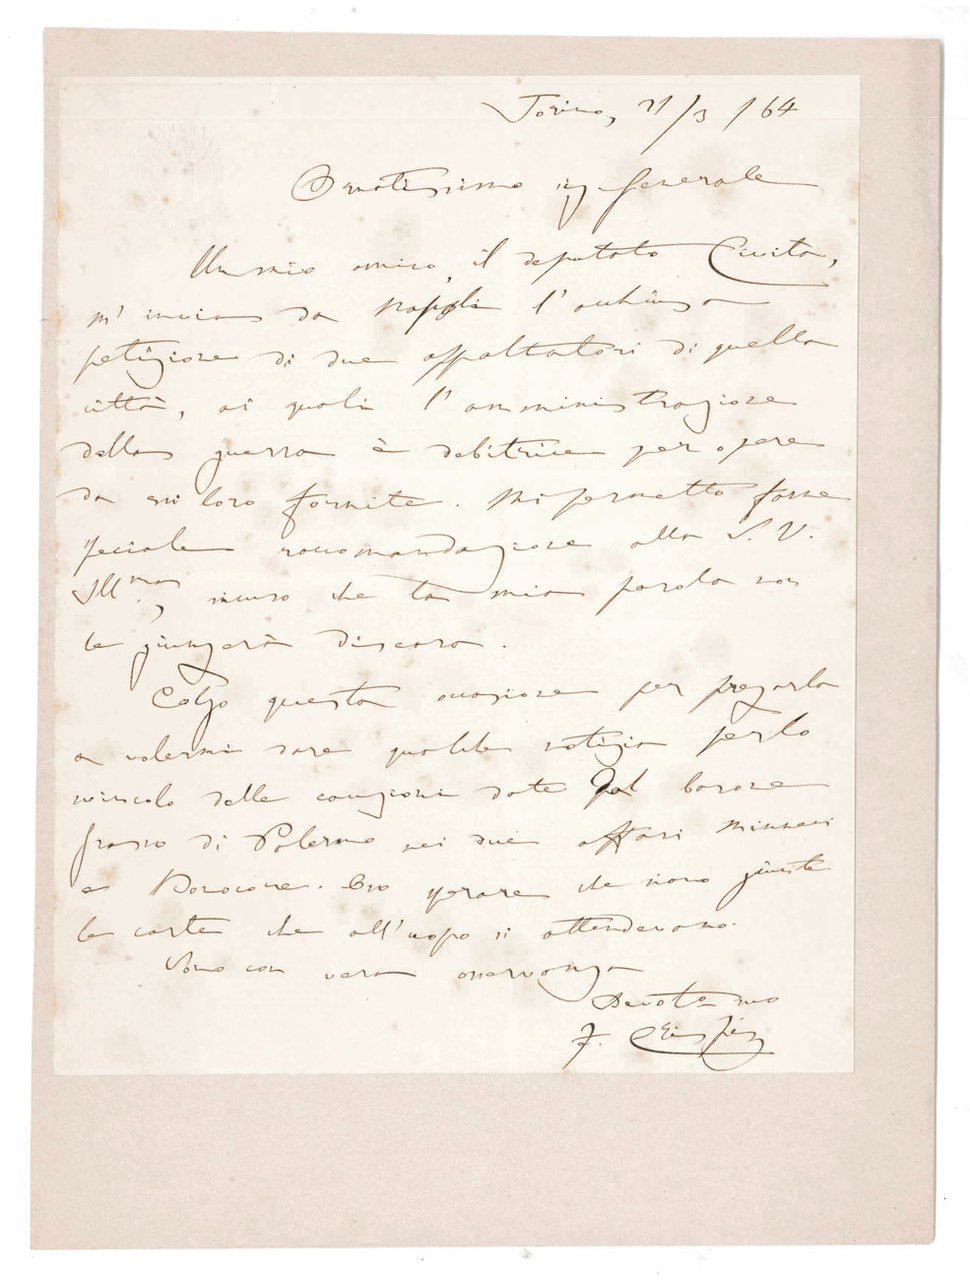 Torino, 21/3 /64
Onoratissimo sig. Generale
Un mio amico, il deputato Civita,
m'invia da Napoli l'acchiusa
petizione di due appaltatori di quella
città, ai quali l'amministrazione
della guerra è debitrice per opere
da essi loro fornite. Mi permetto farne
speciale raccomandazione alla S. V.
Ill.ma, sicuro che la mia parola non
le giungerà discara.
Colgo questa occasione per pregarla
a volermi dare qualche notizia per lo
svincolo delle cauzioni date dal barone
di Palermo nei due affari Minneci
e. Oso sperare che siano giunte
le carte che all'uopo si attendevano.
Sono con vera osservanza
Devoto suo
F. Crispi